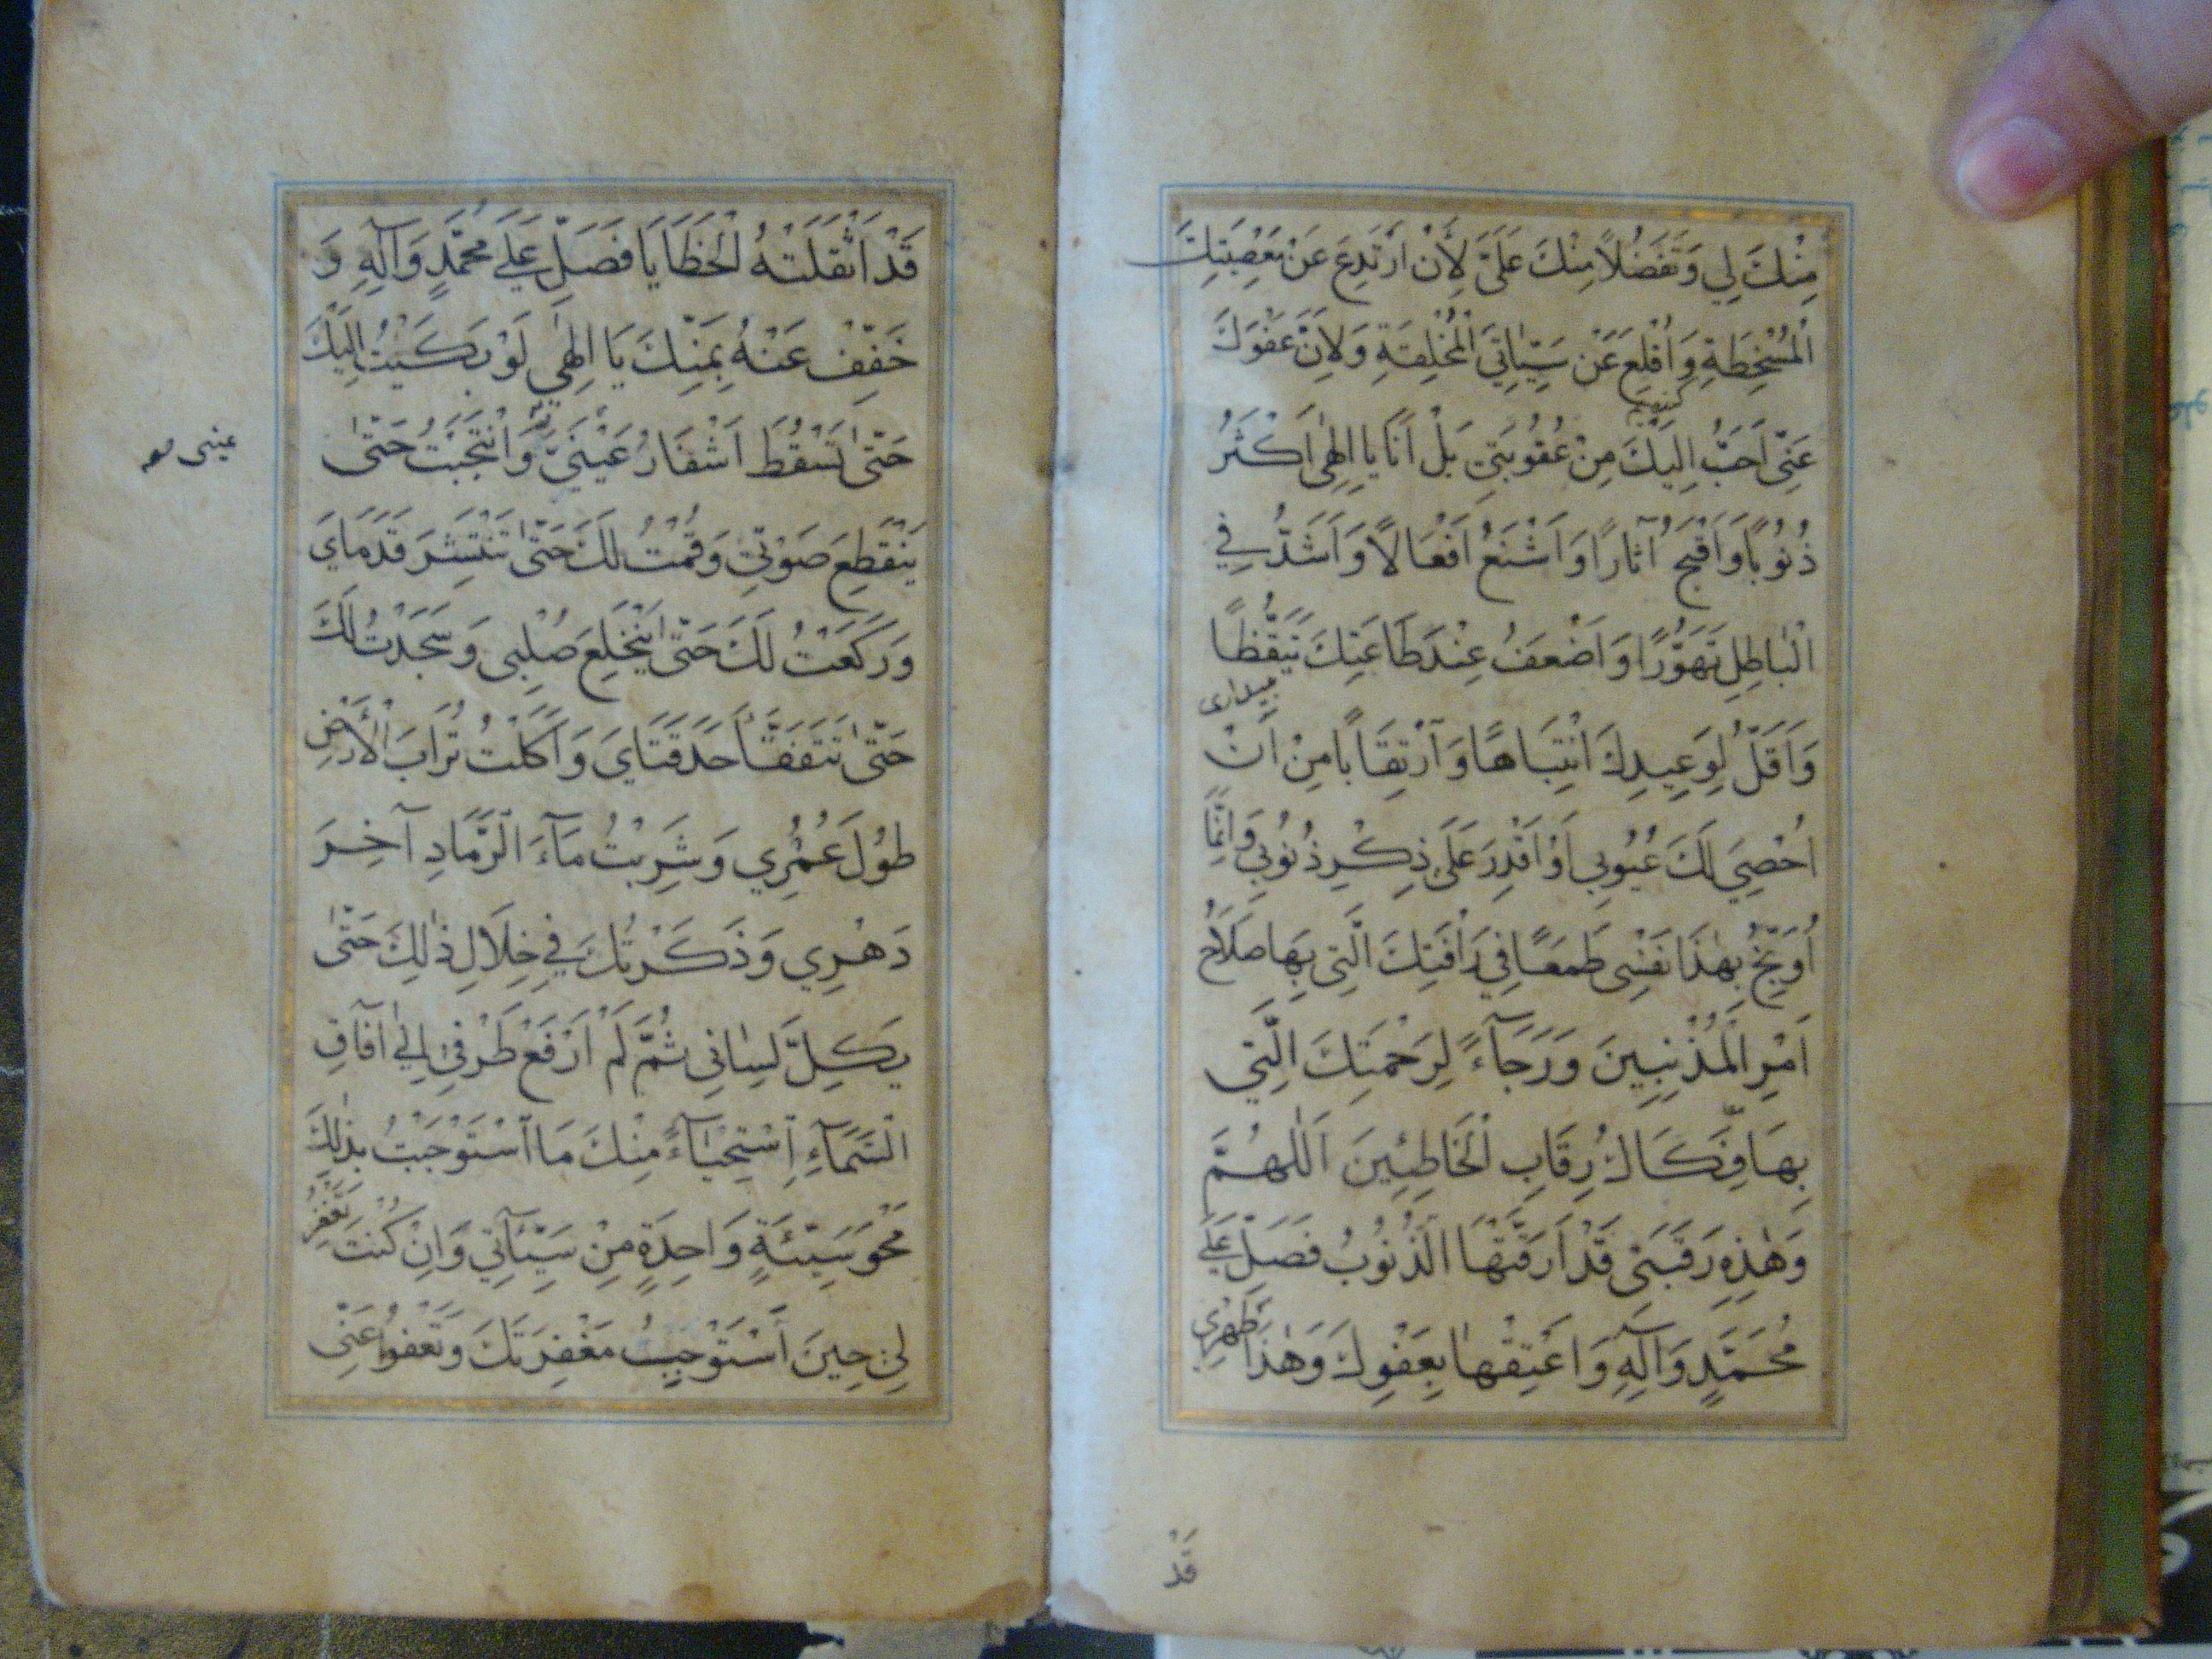 مِنْكَ لِي وَتَفَضُّلًا مِنْكَ عَلَىَّ لِأَنْ اَرْتَدِعَ عَنْ مَعْصِيَتِكَ
الْمُسْخِطَةِ وَاُقْلِعَ عَنْ سَيِّئَاتِيَ الْمُخْلِقَةِ وَلِاَنَّ عَفْوَكَ
عَنِّي اَحَبُّ اِلَيْكَ مِنْ عُقُوبَتِي بَلْ اَنَا يَا اِلٰهِي اَكْثَرُ
ذُنُوبًا وَاَقْبَحُ آثَارًا وَاَشْنَعُ اَفْعَالًا وَاَشَدُّ فِي
الْبَاطِلِ تَهَوُّرًا وَاَضْعَفُ عِنْدَ طَاعَتِكَ تَيَقُّظًا
بیداری
وَاَقَلُّ لِوَعِيدِكَ انْتِبَاهًا وَارْتِقَابًا مِنْ اَنْ
اُحْصِيَ لَكَ عُيُوبِي اَوْ اَقْدِرَ عَلَى ذِكْرِ ذُنُوبِي وَاِنَّمَا
اُوَبِّخُ بِهٰذَا نَفْسِي طَمَعًا فِي رَأْفَتِكَ الَّتِي بِهَا صَلَاحُ
اَمْرِ الْمُذْنِبِينَ وَرَجَآءً لِرَحْمَتِكَ الَّتِي
بِهَا فِكَاكُ رِقَابِ الْخَاطِئِينَ اَللّٰهُمَّ
وَهٰذِهِ رَقَبَتِي قَدْ اَرَقَّتْهَا الذُّنُوبُ فَصَلِّ عَلَى
مُحَمَّدٍ وَآلِهِ وَاَعْتِقْهَا بِعَفْوِكَ وَهٰذَا ظَهْرِي
قَدْ
قَدْ اَثْقَلَتْهُ الْخَطَايَا فَصَلِّ عَلَى مُحَمَّدٍ وَآلِهِ وَ
خَفِّفْ عَنْهُ بِمَنِّكَ يَا اِلٰهِي لَوْ بَكَيْتُ اِلَيْكَ
حَتّٰى تَسْقُطَ اَشْفَارُ عَيْنَيَّ وَانْتَحَبْتُ حَتّٰى
عینی
يَنْقَطِعَ صَوْتِي وَقُمْتُ لَكَ حَتّٰى تَنْتَشِرَ قَدَمَايَ
وَرَكَعْتُ لَكَ حَتّٰى يَنْخَلِعَ صُلْبِي وَسَجَدْتُ لَكَ
حَتّٰى تَتَفَقَّأَ حَدَقَتَايَ وَاَكَلْتُ تُرَابَ الْأَرْضِ
طُولَ عُمُرِي وَشَرِبْتُ مَآءَ الرَّمَادِ آخِرَ
دَهْرِي وَذَكَرْتُكَ فِي خِلَالِ ذٰلِكَ حَتّٰى
يَكِلَّ لِسَانِي ثُمَّ لَمْ اَرْفَعْ طَرْفِي اِلٰى آفَاقِ
السَّمَآءِ اِسْتِحْيَآءً مِنْكَ مَا اسْتَوْجَبْتُ بِذٰلِكَ
مَحْوَ سَيِّئَةٍ وَاحِدَةٍ مِنْ سَيِّئَآتِي وَاِنْ كُنْتَ تَغْفِرُ
لِي حِينَ اَسْتَوْجِبُ مَغْفِرَتَكَ وَتَعْفُوا عَنِّي